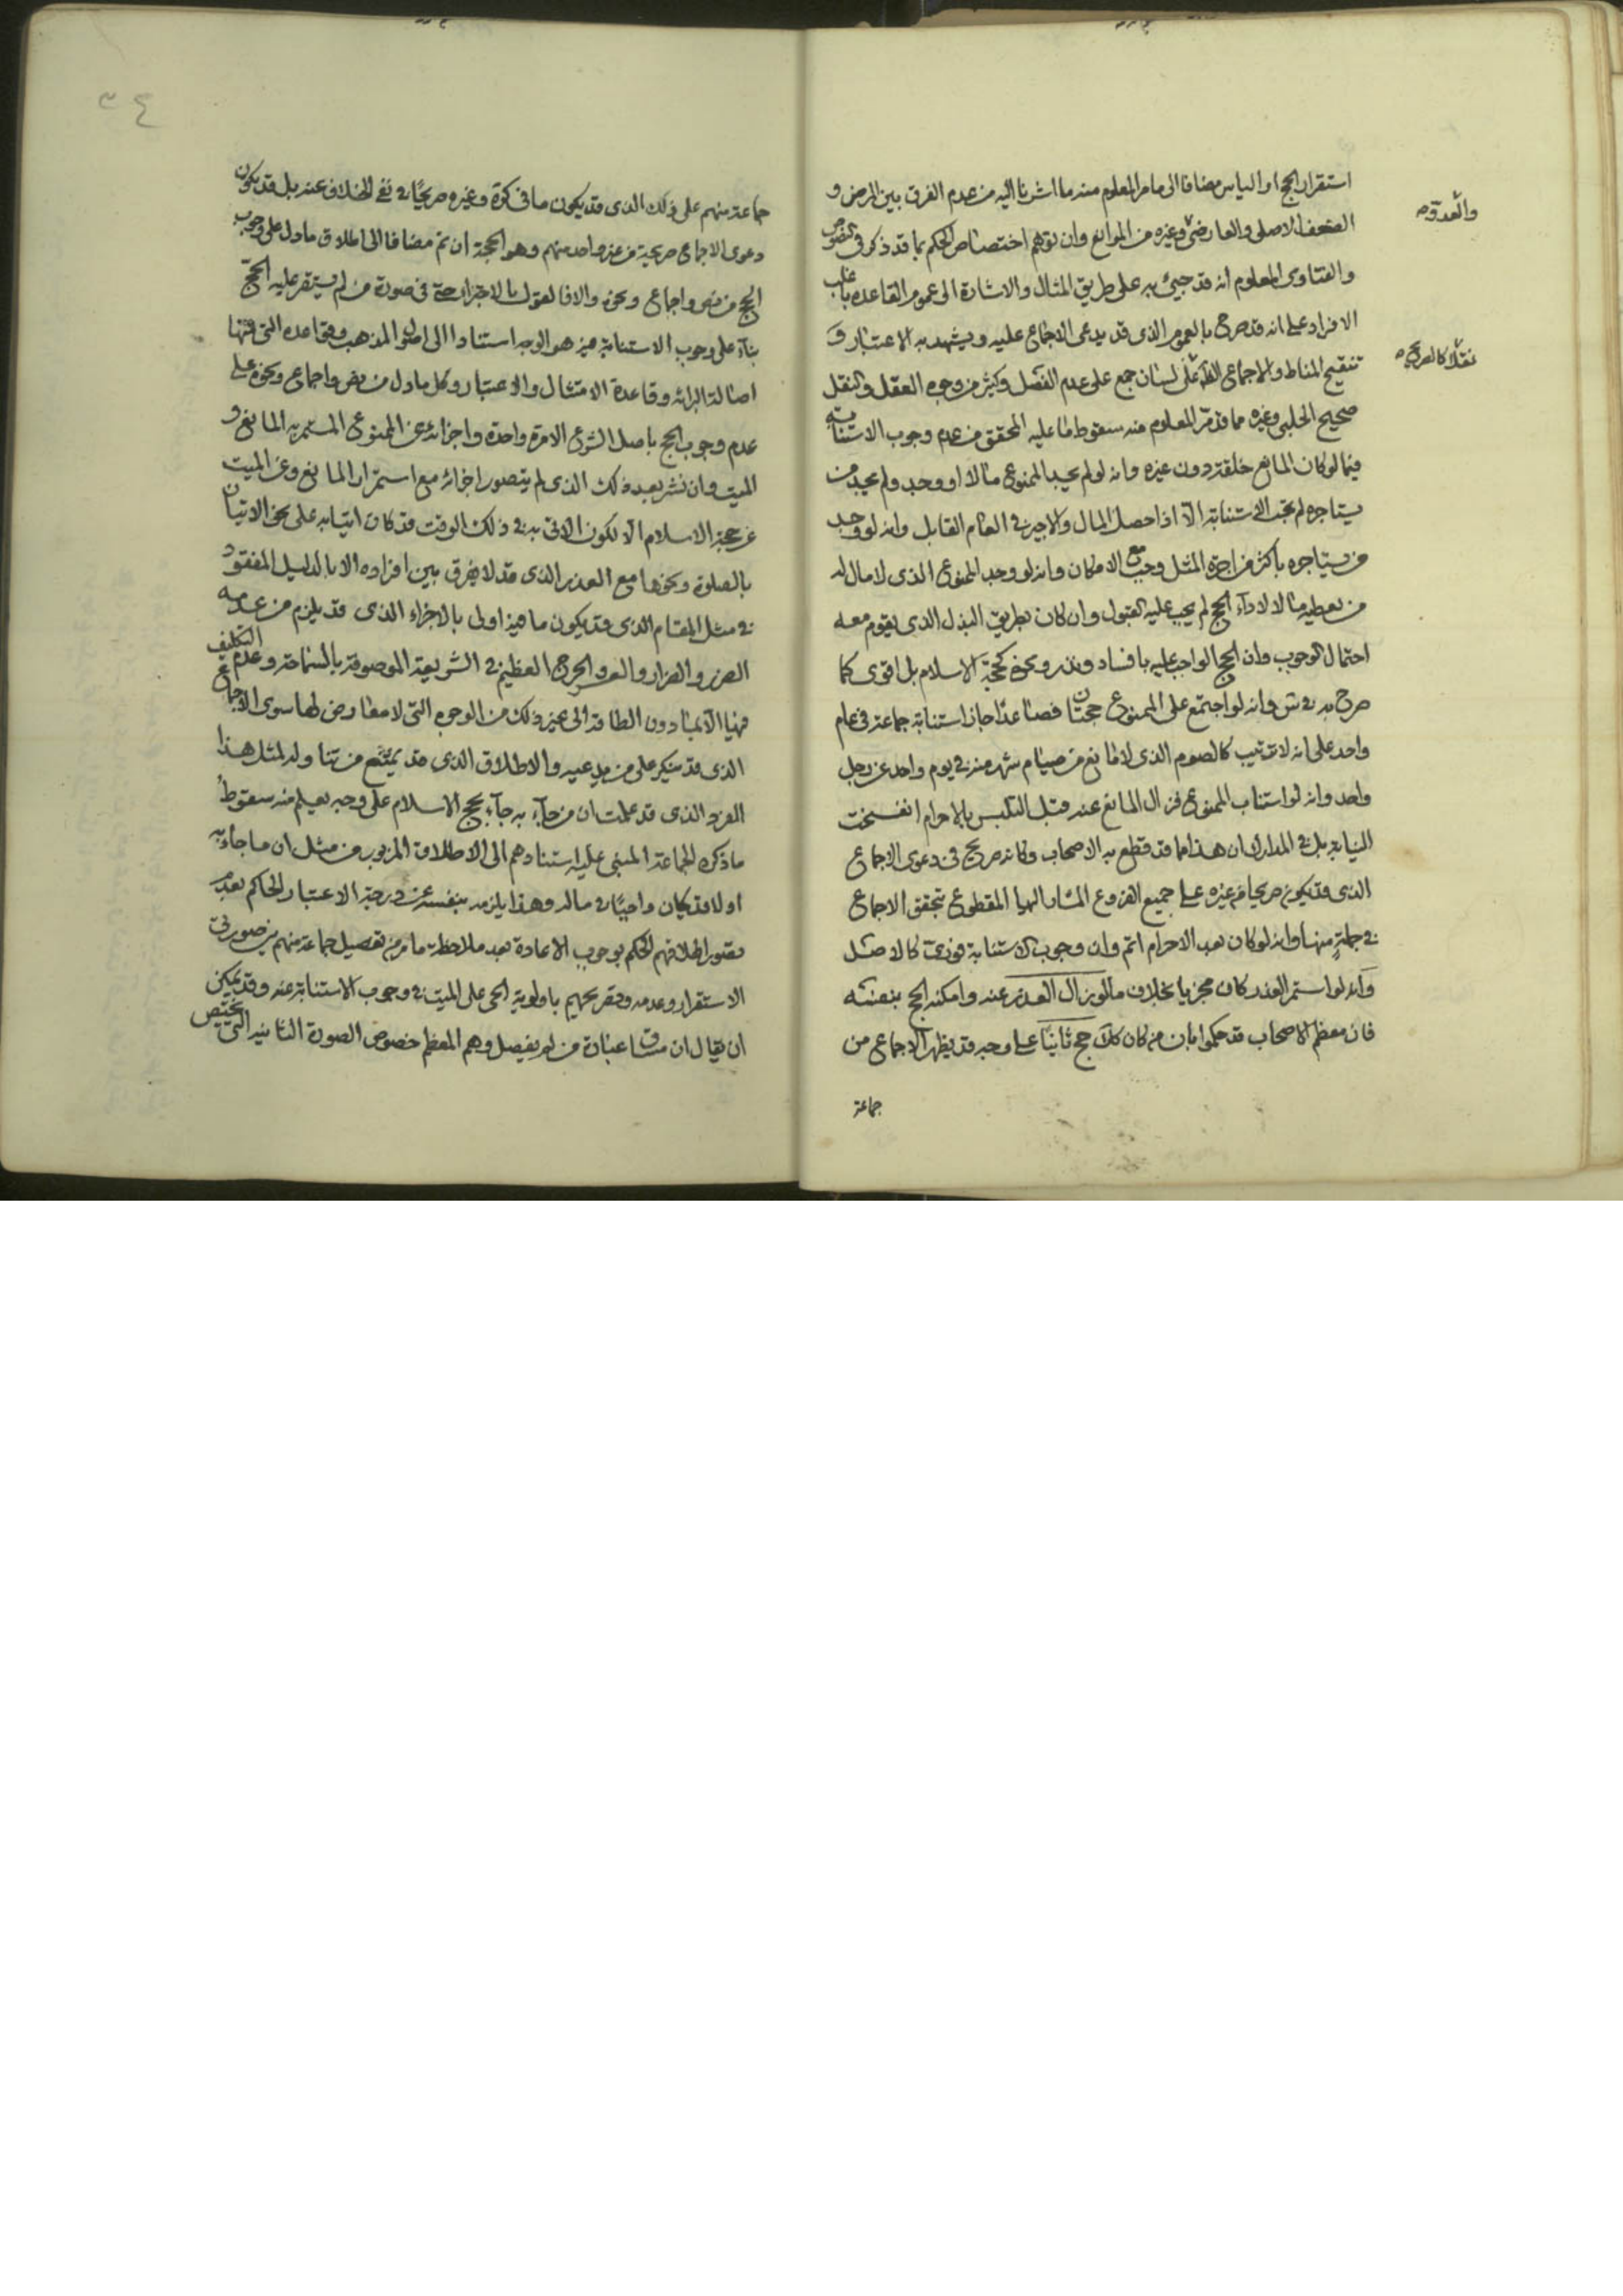 استقرار الحج او الياس مضافا الى ما مر المعلوم منه ما اشرنا اليه من عدم الفرق بين المرض و
والعدو صح
الضعف الاصلى والعارضى وغيره من الموانع وان توهم اختصاص الحكم بما قد ذكر فى النصوص
والفتاوى المعلوم انه قد جيئ به على طريق المثال والاشارة الى عموم القاعده باغلب
الافراد على انه قد صرح بالعموم الذى قد يدعى الاجماع عليه ويشهد به الاعتبار و
نقلا كالصريح صح
تنقيح المناط والاجماع على لسان جمع على عدم الفصل وكثير من وجوه العقل والنقل
صحيح الحلبى وغيره مما قد مر المعلوم منه سقوط ما عليه المحقق من عدم وجوب الاستنابة
فيما لو كان المانع خلقة دون غيره وانه لو لم يجد الممنوع مالا او وجد ولم يجد من
يستاجره لم تجب الاستنابة الا اذا حصل المال والاجير فى العام القابل وانه لو وجد
من يستاجره باكثر من اجرة المثل وجب مع الامكان وانه لو وجد الممنوع الذى لا مال له
من يعطيه مالا لاداء الحج لم يجب عليه القبول وان كان بطريق البذل الذى يقوم معه
احتمال الوجوب وان الحج الواجب عليه بافساد ونذر ونحوه كحجة الاسلام بل اقوى كما
صرح به فى س وانه لو اجتمع على الممنوع حجتان فصاعدا جاز استنابة جماعة فى عام
واحد على انه لا ترتيب كالصوم الذى لا مانع من صيام شهر منه فى يوم واحد عن رجل
واحد وانه لو استناب الممنوع فزال المانع عنه قبل التلبس بالاحرام انفسخت
النيابة بل فى المدارك ان هذا مما قد قطع به الاصحاب وكانه صريح فى دعوى الاجماع
الذى قد يكون صريحا من غيره على جميع الفروع المشار اليها المقطوع بتحقق الاجماع
فى جملة منها وانه لو كان بعد الاحرام اتم وان وجوب الاستنابة فورى كالاصل
وانه لو استمر العذر كان مجزيا بخلاف ما لو زال العذر عنه وامكنه الحج بنفسه
فان معظم الاصحاب قد حكموا بان من كان كك حج ثانيا على وجه قد يظهر الاجماع من
جماعة
جماعة منهم على ذلك الذى قد يكون ما فى كرة وغيره صريحا فى نفى الخلاف عنه بل قد يكون
دعوى الاجماع صريحة من غير واحد منهم وهو الحجة ان تم مضافا الى اطلاق ما دل على وجوب
الحج من نص واجماع ونحوه والا فالقول بالاجتزاء حتى فى صورة من لم يستقر عليه الحج
بناء على وجوب الاستنابة فيه هو الوجه استنادا الى اصول المذهب وقواعده التى منها
اصالة البرائه وقاعدة الامتثال والاعتبار وكل ما دل من نص واجماع ونحوه على
عدم وجوب الحج باصل الشرع الا مرة واحدة واجزائه عن الممنوع المستمر به المانع و
الميت وان نشر بعد ذلك الذى لم يتصور اجزائه مع استمرار المانع وعن الميت
عن حجة الاسلام الا لكون الاتى به فى ذلك الوقت قد كان اتيا به على نحو الاتيان
بالصلوة ونحوها مع العذر الذى قد لا يفرق بين افراده الا بالدليل المفقود
فى مثل المقام الذى قد يكون ما فيه اولى بالاجزاء الذى قد يلزم من عدمه
الضرر والضرار والعسر والحرج العظيم فى الشريعة الموصوفة بالسماحة وعدم التكليف
فيها الا بما دون الطاقة الى غير ذلك من الوجوه التى لا معارض لها سوى الاجماع
الذى قد ينكر على من يدعيه والاطلاق الذى قد يمنع من تناوله لمثل هذا
الفرد الذى قد علمت ان من جاء به جاء بحج الاسلام على وجه يعلم منه سقوط
ما ذكره الجماعة المبنى عليه استنادهم الى الاطلاق المزبور من مثل ان ما جاء به
اولا قد كان واجبا فى ماله وهذا يلزمه بنفسه عند درجة الاعتبار الحاكم بعدم
تصور اطلاقهم الحكم بوجوب الاعادة بعد ملاحظة ما مر من تفصيل جماعة منهم بين صورتى
الاستقرار وعدمه وتصريحهم باولوية الحى على الميت فى وجوب الاستنابة عنه وقد يمكن
ان يقال ان مساق عبارة من لم يفصل وهم المعظم خصوص الصورة الثانيه التى يختص